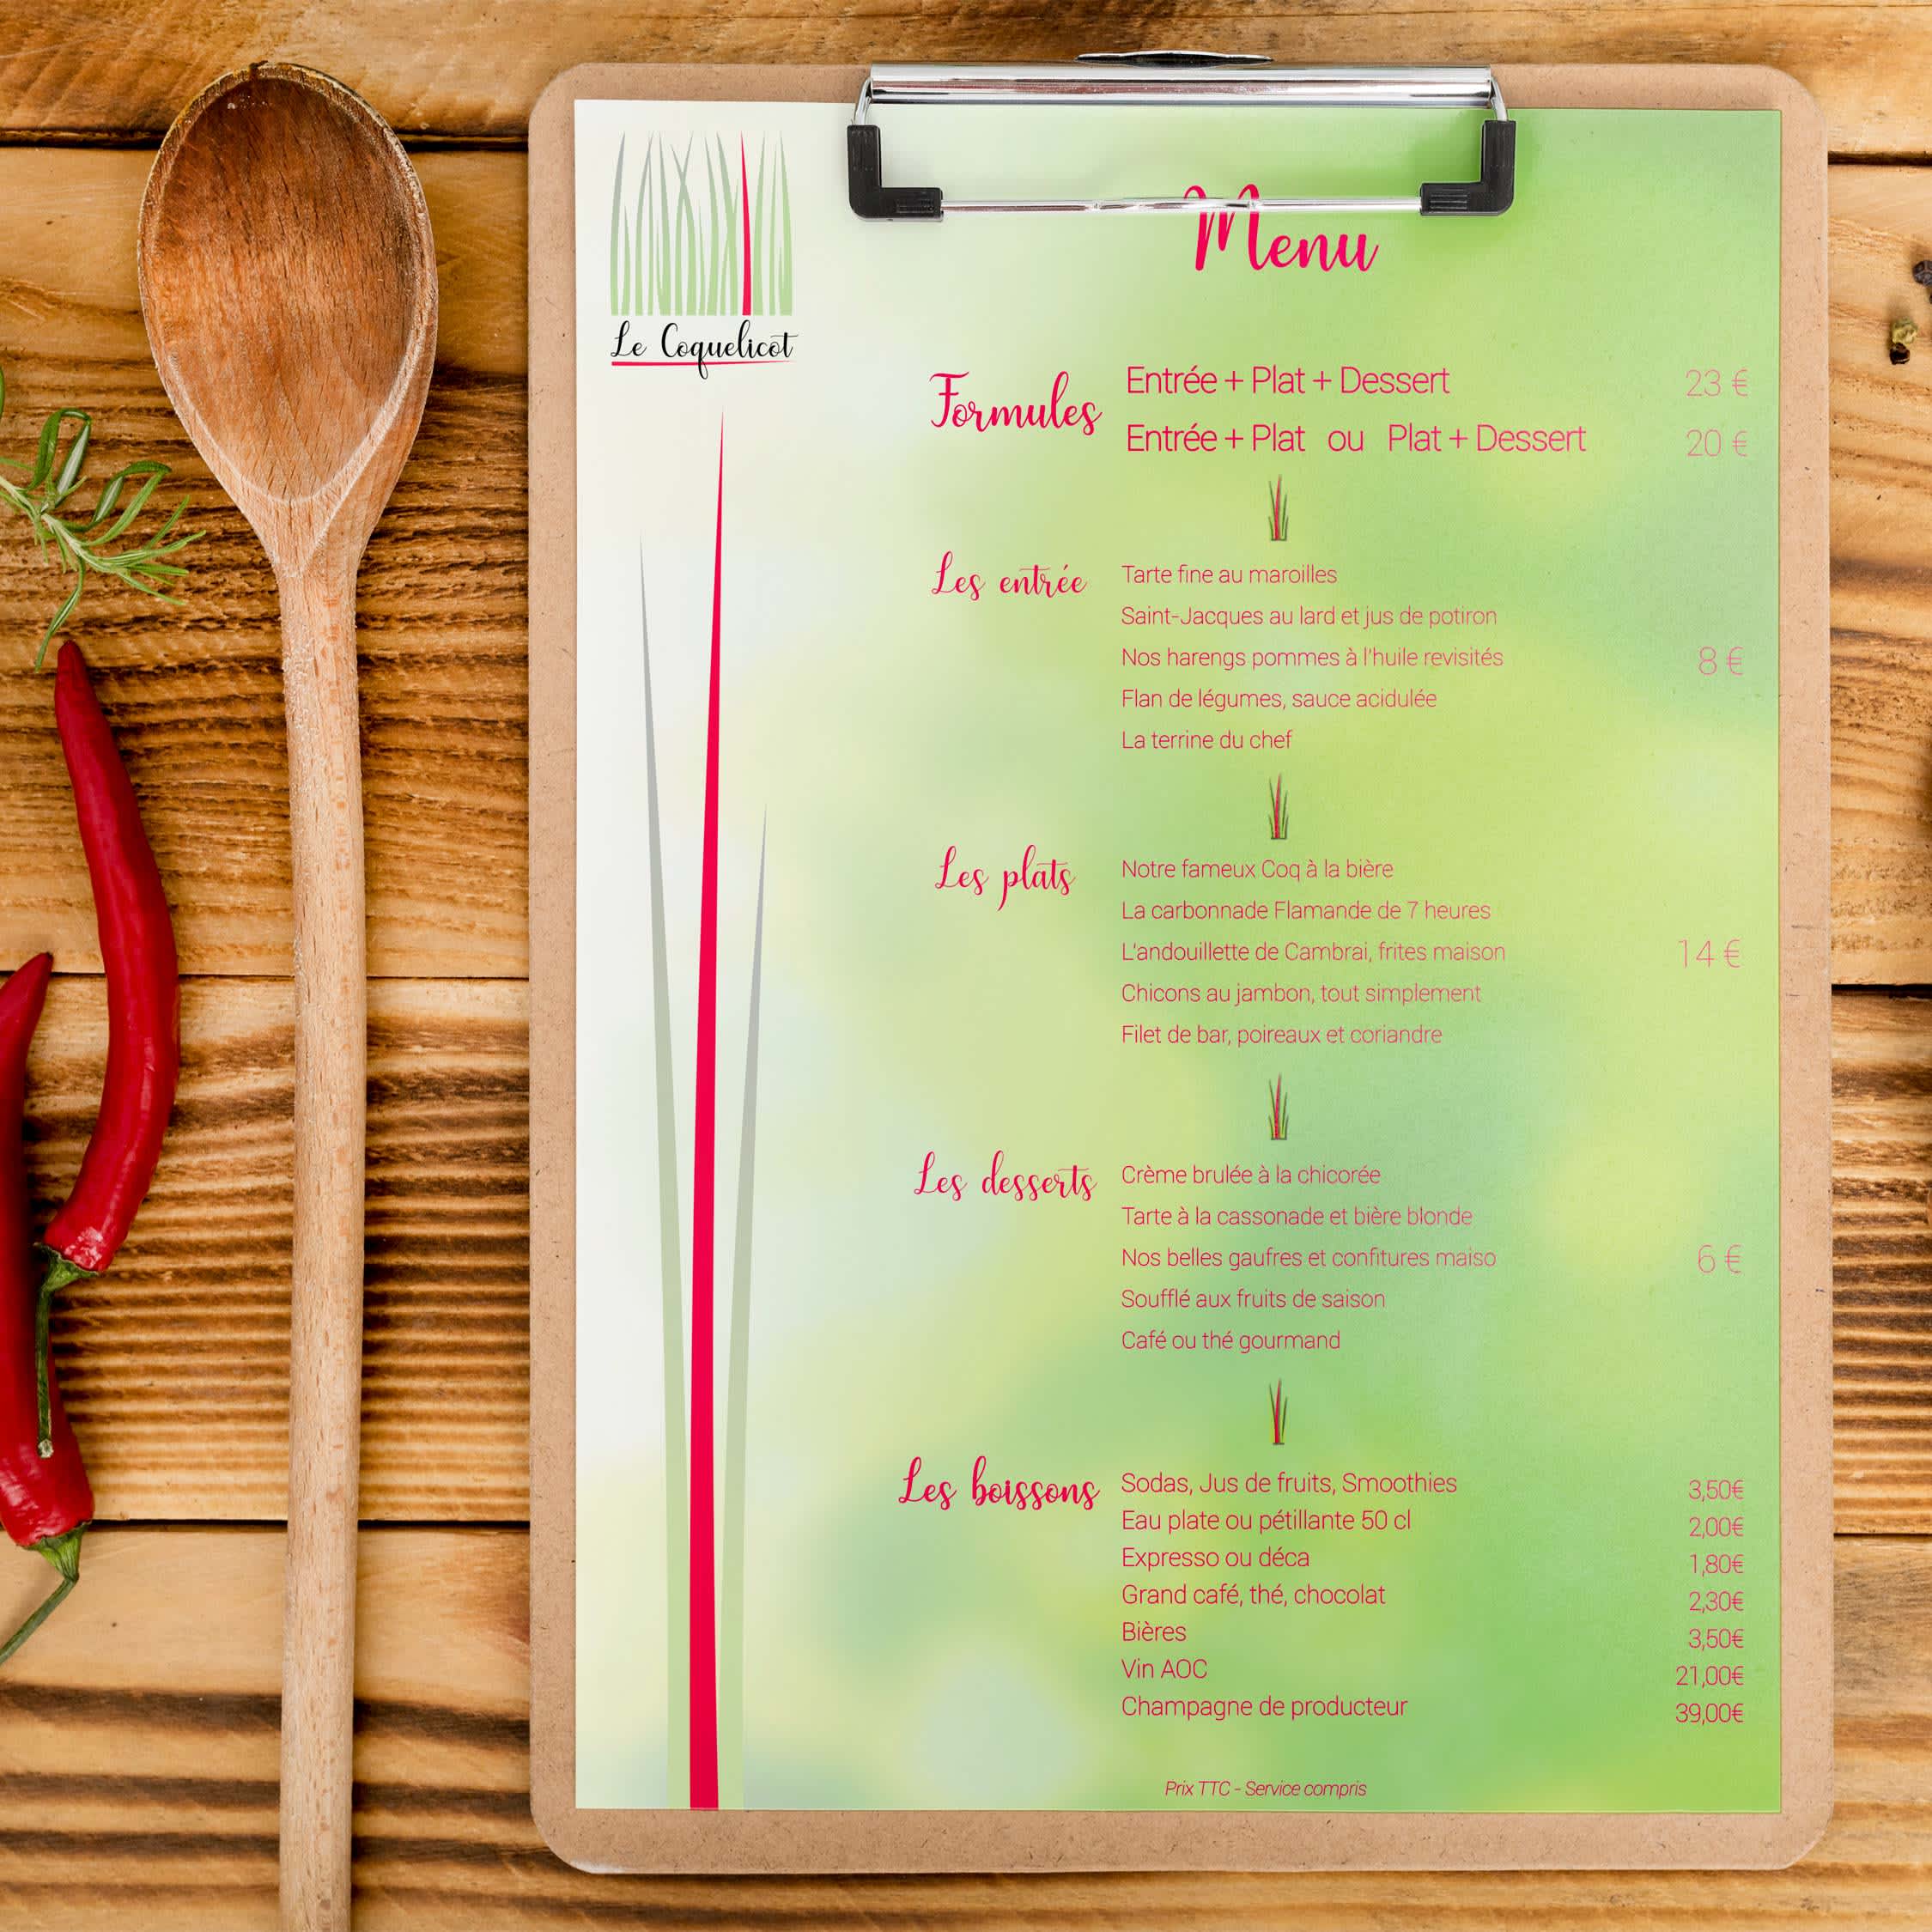 Le Coquelicot
Menu
Formules
Entrée + Plat + Dessert 23 €
Entrée + Plat ou Plat + Dessert 20 €
Les entrée
Tarte fine au maroilles
Saint-Jacques au lard et jus de potiron
Nos harengs pommes à l'huile revisités 8 €
Flan de légumes, sauce acidulée
La terrine du chef
Les plats
Notre fameux Coq à la bière
La carbonnade Flamande de 7 heures
L'andouillette de Cambrai, frites maison 14 €
Chicons au jambon, tout simplement
Filet de bar, poireaux et coriandre
Les desserts
Crème brulée à la chicorée
Tarte à la cassonade et bière blonde
Nos belles gaufres et confitures maiso 6 €
Soufflé aux fruits de saison
Café ou thé gourmand
Les boissons
Sodas, Jus de fruits, Smoothies 3,50€
Eau plate ou pétillante 50 cl 2,00€
Expresso ou déca 1,80€
Grand café, thé, chocolat 2,30€
Bières 3,50€
Vin AOC 21,00€
Champagne de producteur 39,00€
Prix TTC - Service compris